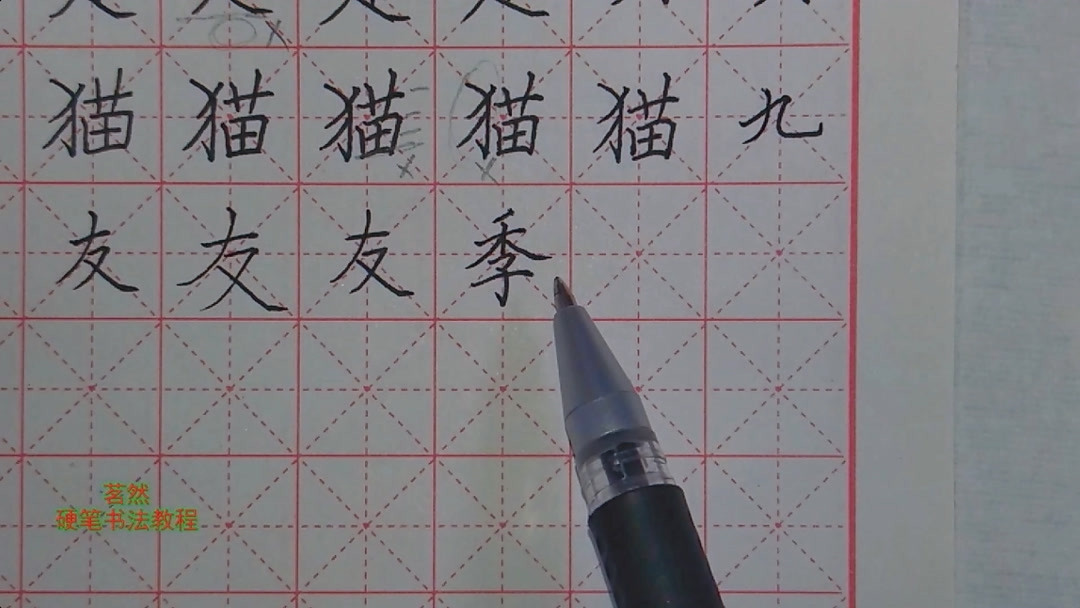 猫猫猫猫猫九
友友友季
茗然
硬笔书法教程